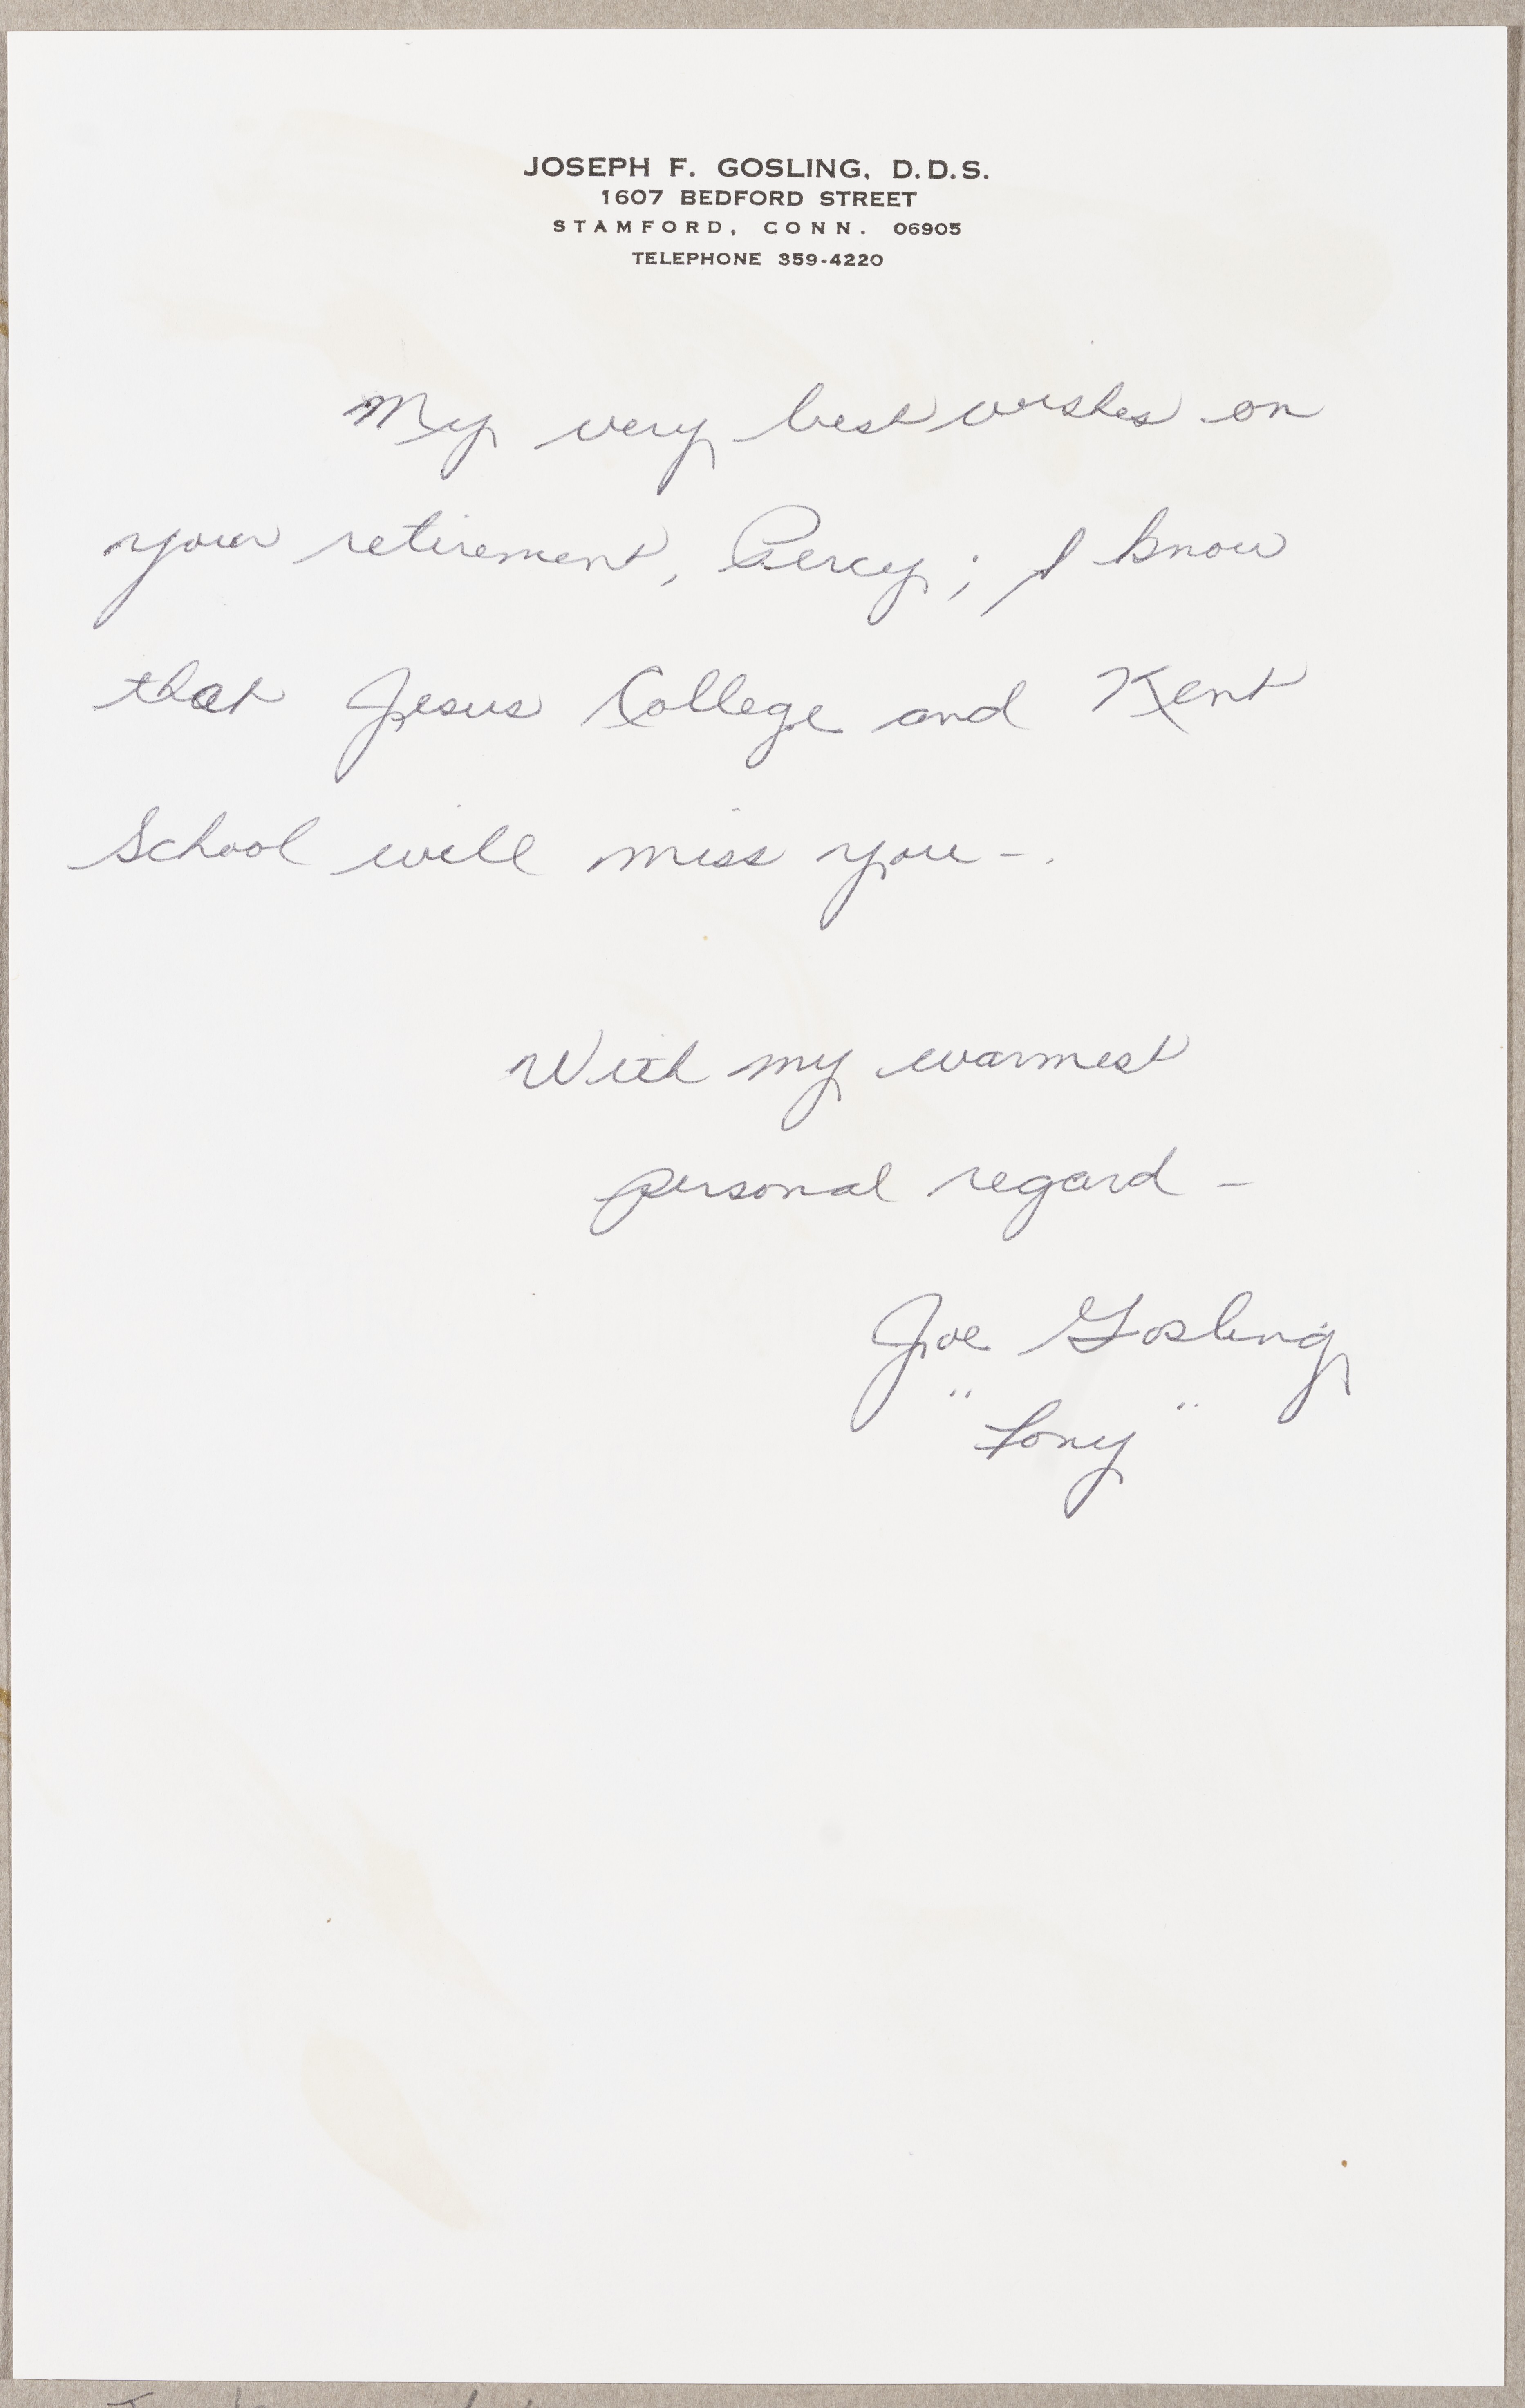 JOSEPH F. GOSLING, D.D.S.
1607 BEDFORD STREET
STAMFORD, CONN. 06905
TELEPHONE 359-4220
My very best wishes on
your retirement, Percy; I know
that Jesus College and Kent
School will miss you -.
With my warmest
personal regard -
Joe Gosling
"Tony"